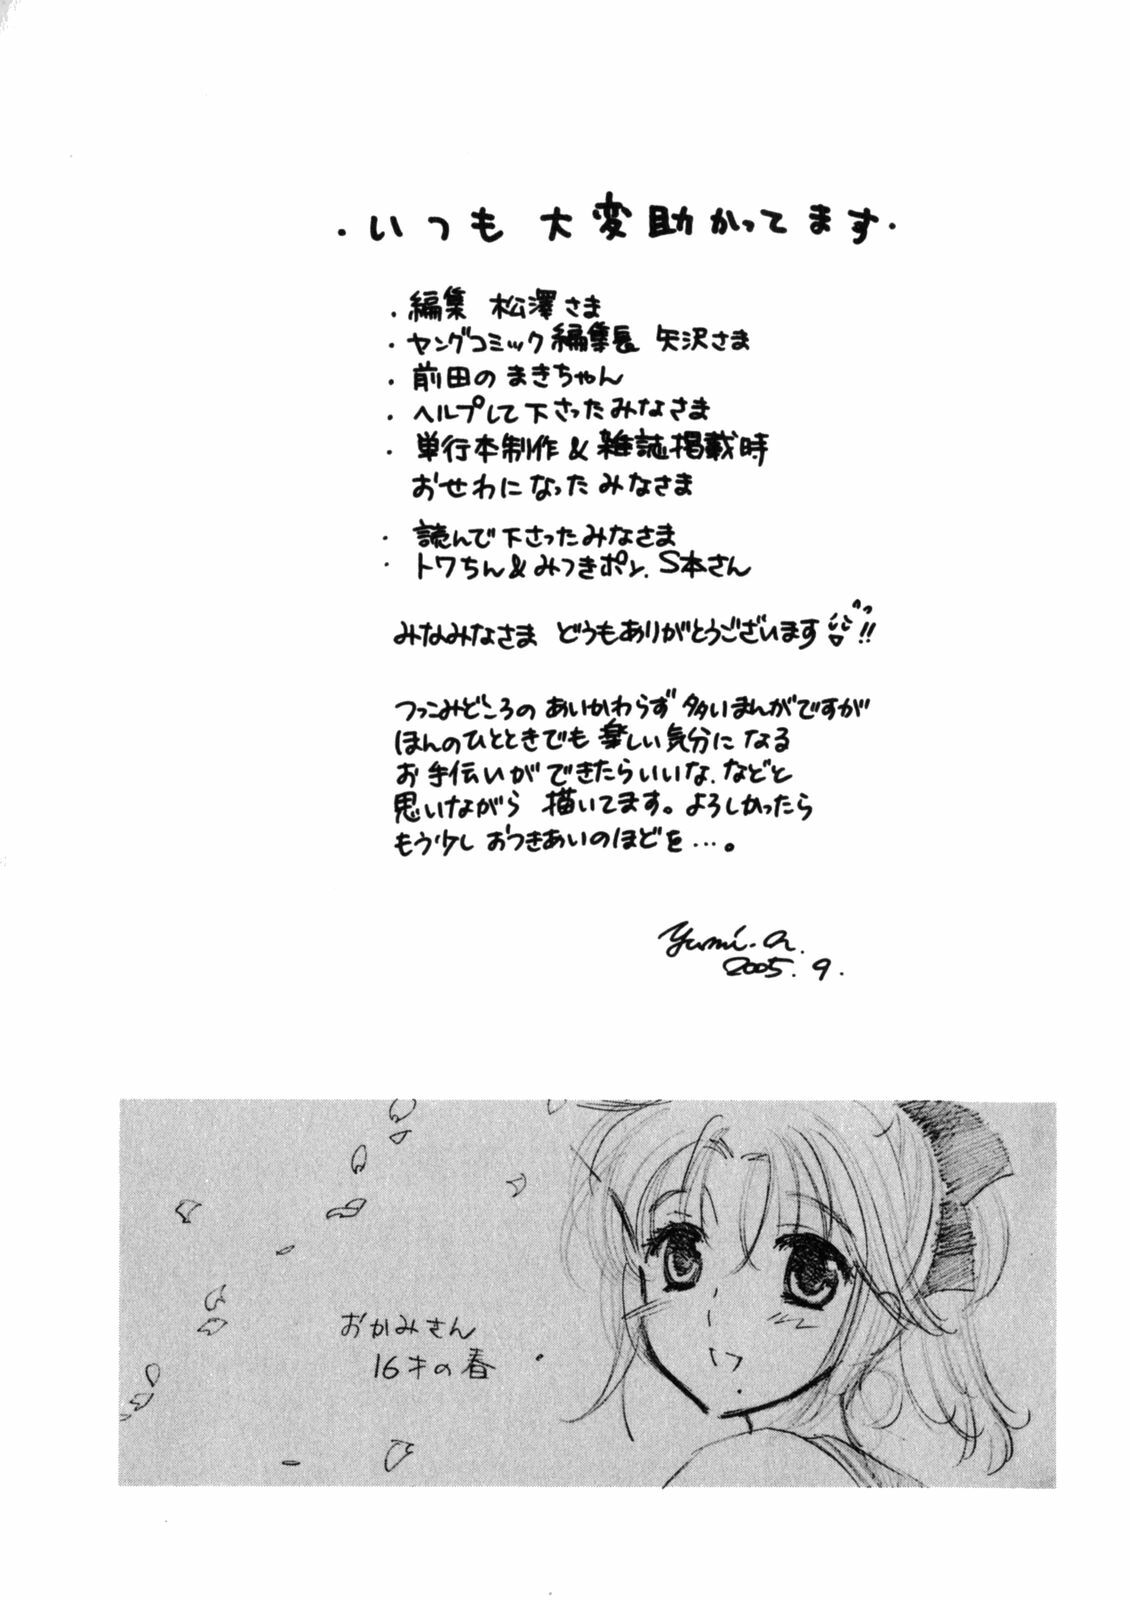 ・いつも 大変助かってます・
・編集 松澤さま
・ヤングコミック編集長 矢沢さま
・前田のまきちゃん
・ヘルプして下さったみなさま
・単行本制作&雑誌掲載時
おせわになったみなさま
・読んで下さったみなさま
・トワちん&みつきポン、S本さん
みなみなさま どうもありがとうございます!!
つっこみどころのあいかわらず多いまんがですが
ほんのひとときでも楽しい気分になる
お手伝いができたらいいな、などと
思いながら描いてます。よろしかったら
もう少しおつきあいのほどを…。
Yumi.
2005.9.
おかみさん
16才の春